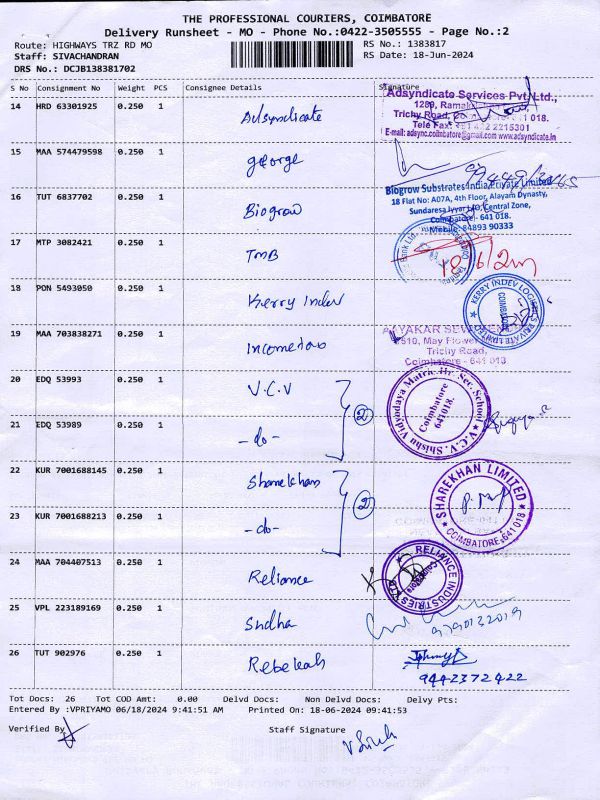 THE PROFESSIONAL COURIERS, COIMBATORE
Delivery Runsheet - MO - Phone No.:0422-3505555 - Page No.:2
Route: HIGHWAYS TRZ RD MO
RS No.: 1383817
Staff: SIVACHANDRAN
RS Date: 18-Jun-2024
DRS No.: DCJB138381702
S No Consignment No Weight PCS Consignee Details Signature
14 HRD 63301925 0.250 1 Adsyndicate
Adsyndicate Services Pvt. Ltd.,
Trichy Road,
Tele Fax: 2215301
E-mail: adsync.coimbatore@gmail.com www.adsyndicate.in
15 MAA 574479598 0.250 1 george
16 TUT 6837702 0.250 1 Biogrow
Biogrow Substrates India Private Limited
18 Flat No: A07A, 4th Floor, Alayam Dynasty,
Sundaresa Iyyar Central Zone,
Coimbatore - 641 018.
Mobile: 84893 90333
17 MTP 3082421 0.250 1 TMB
Bank Ltd.
18/6/2
18 PON 5493050 0.250 1 Kerry Indev
KERRY INDEV LOGISTICS PRIVATE LIMITED
19 MAA 703838271 0.250 1
May Flower
Trichy Road,
Coimbatore - 641 018
20 EDQ 53993 0.250 1 V.C.V
②
V.C.V. Shishu Vidyodaya Matric. Hr. Sec. School
Coimbatore
641018.
21 EDQ 53989 0.250 1 -do-
22 KUR 7001688145 0.250 1 Sharekhan
②
SHAREKHAN LIMITED
COIMBATORE-641 018
23 KUR 7001688213 0.250 1 -do-
24 MAA 704407513 0.250 1 Reliance
RELIANCE INDUSTRIES LTD
Coimbatore
25 VPL 223189169 0.250 1 Sudha
26 TUT 902976 0.250 1 Rebekah
9442372422
Tot Docs: 26 Tot COD Amt: 0.00 Delvd Docs: Non Delvd Docs: Delvy Pts:
Entered By :VPRIYAMO 06/18/2024 9:41:51 AM Printed On: 18-06-2024 09:41:53
Verified By
Staff Signature